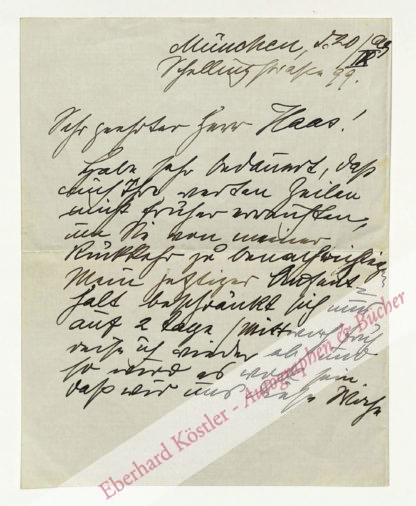 München, d. 20/IX 09
Schellingstraße 99.
Sehr geehrter Herr Haas!
Habe sehr bedauert, daß
mich Ihre werten Zeilen
nicht früher erreichten,
um Sie von meiner
Rückkehr zu benachrichtigen.
Mein jetziger Aufent-
halt beschränkt sich nur
auf 2 Tage / Mittwoch früh
reise ich wieder ab und
so wird es wohl sein
daß wir uns
Eberhard Köstler - Autographen & Bücher